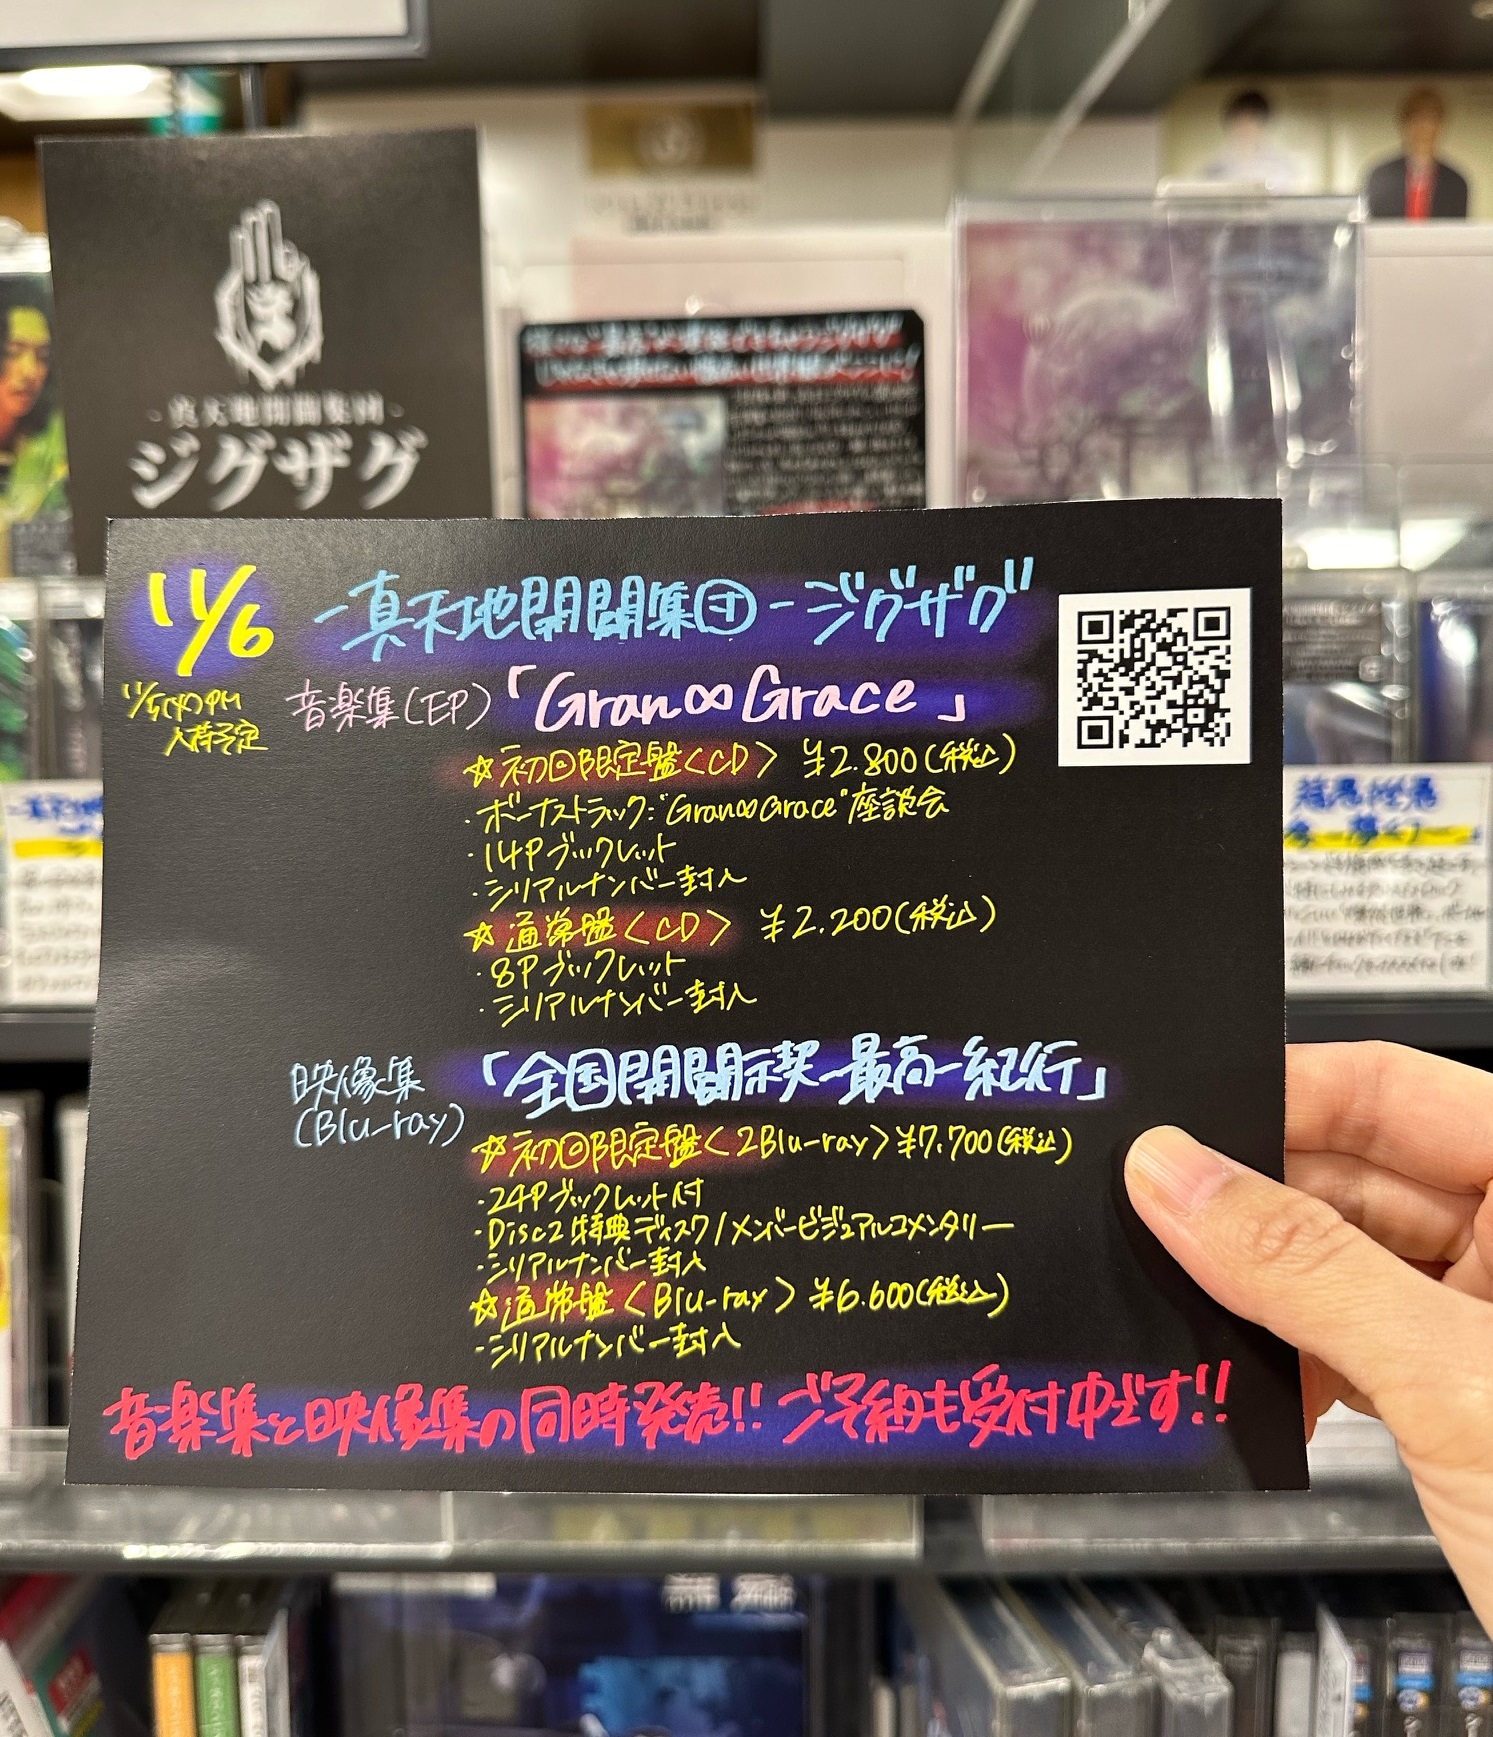 -真天地開闢集団-
ジグザグ
11/6
-真天地開闢集団-ジグザグ
11/5(火)PM
入荷予定
音楽集(EP)「Gran∞Grace」
☆初回限定盤<CD> ¥2.800(税込)
・ボーナストラック:"Gran∞Grace"座談会
・14Pブックレット
・シリアルナンバー封入
☆通常盤<CD> ¥2.200(税込)
・8Pブックレット
・シリアルナンバー封入
映像集
(Blu-ray)
「全国開闢禊-最高-紀行」
☆初回限定盤<2Blu-ray>¥7.700(税込)
・24Pブックレット付
・Disc2特典ディスク/メンバービジュアルコメンタリー
・シリアルナンバー封入
☆通常盤<Blu-ray>¥6.600(税込)
・シリアルナンバー封入
音楽集と映像集の同時発売!!ご予約も受付中です!!